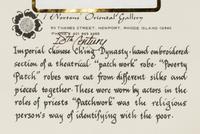 Norton's Oriental Gallery
90 THAMES STREET, NEWPORT, RHODE ISLAND 02840
18th Century
Imperial Chinese Ching Dynasty hand embroidered
section of a theatrical "patch work" robe. "Poverty
Patch" robes were cut from different silks and
pieced together. These were worn by actors in the
roles of priests "Patchwork" was the religious
person's way of identifying with the poor.